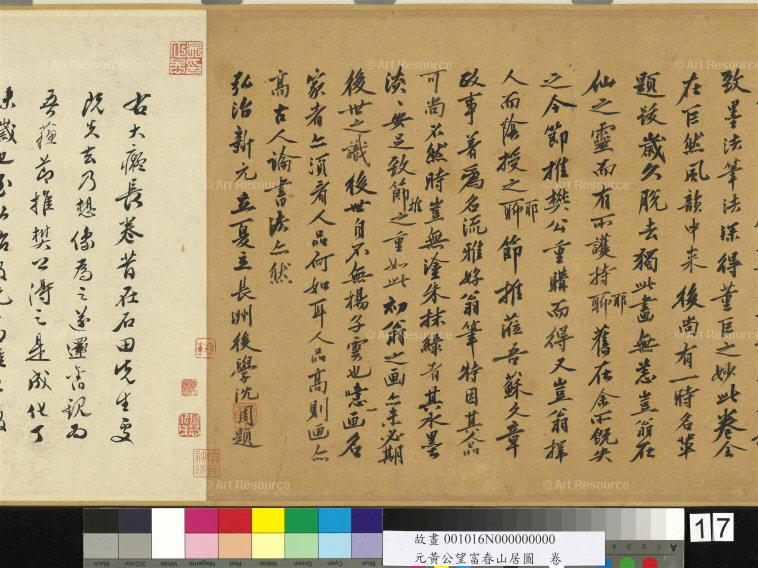 致墨法筆法深得董巨之妙此卷全
在巨然風韻中来後尚有一時名輩
題跋歲久脱去獨此畫無恙豈翁在
仙之靈而有所護持聊耶舊在余所既失
之今節推樊公重購而得又豈翁擇
人而陰授之聊耶節推蒞吾蘇文章
政事著為名流雅好翁筆特因其人品
可尚不然時豈無塗朱抹綠者其水墨
淡淡安足致節推之重如此初翁之画亦未必期
後世之識後世自不無楊子雲也噫画名
家者亦須看人品何如耳人品高則画亦
高古人論書法亦然
弘治新元立夏立長洲後學沈周題
右大癡長卷昔在石田先生處
既失去乃想像為之遂還舊觀為
吾蘇節推樊公得之是成化丁
未歲也
© Art Resource
Black
3/Color
White
Magenta
Red
Yellow
Green
Cyan
Blue
故畫 001016N000000000
元黃公望富春山居圖　卷
A
17